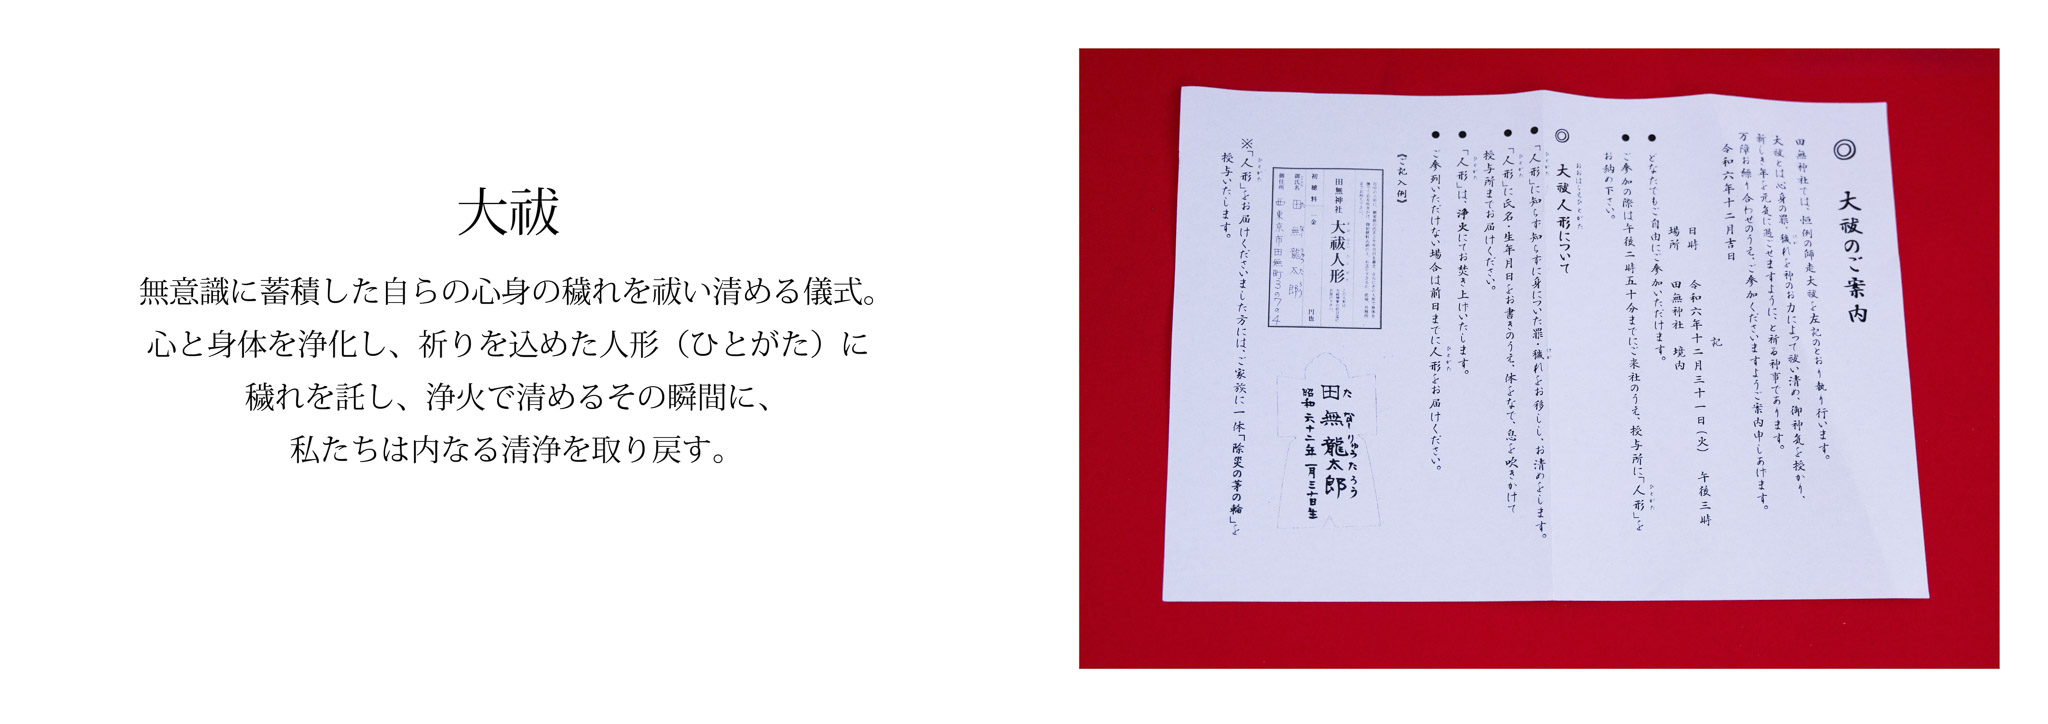 大祓
無意識に蓄積した自らの心身の穢れを祓い清める儀式。
心と身体を浄化し、祈りを込めた人形（ひとがた）に
穢れを託し、浄火で清めるその瞬間に、
私たちは内なる清浄を取り戻す。
◎ 大祓のご案内
田無神社では、恒例の師走大祓を左記のとおり執り行います。
大祓とは心身の罪、穢れを神のお力によって祓い清め、御神気を授かり、
新しき年を元気に過ごせますように、と祈る神事であります。
万障お繰り合わせのうえ、ご参加くださいますようご案内申しあげます。
令和六年十二月吉日
記
日時 令和六年十二月三十一日（火） 午後三時
場所 田無神社 境内
● どなたでもご自由にご参加いただけます。
● ご参加の際は午後二時五十分までにご来社のうえ、授与所に「人形」を
お納め下さい。
◎ 大祓人形について
● 「人形」に知らず知らずに身についた罪・穢れをお移しし、お清めをします。
● 「人形」に氏名・生年月日をお書きのうえ、体をなで、息を吹きかけて
授与所までお届けください。
● 「人形」は、浄火にてお焚き上げいたします。
● ご参列いただけない場合は前日までに人形をお届けください。
《ご記入例》
田無神社 大祓人形
初穂料 一金 円也
御氏名 田無龍太郎
御住所 西東京市田無町3-7-4
田無龍太郎
昭和六十二年一月三十日生
※「人形」をお届けくださいました方には、ご家族に一体「除災の茅の輪」を
授与いたします。